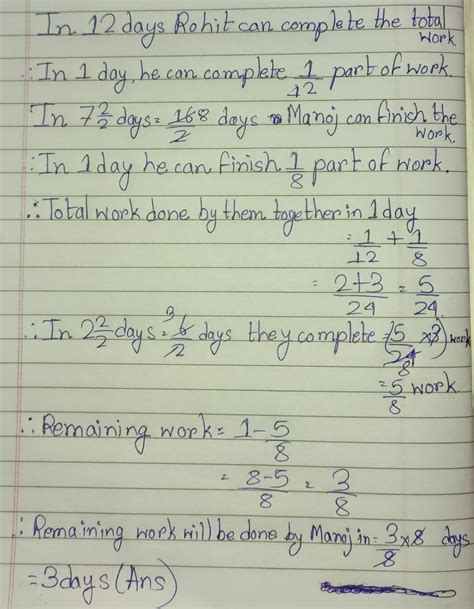 In 12 days Rohit can complete the total work.
∴ In 1 day, he can complete 1/12 part of work.
In 7 2/2 days = 16/2 8 days Manoj can finish the work.
∴ In 1 day he can finish 1/8 part of work.
∴ Total work done by them together in 1 day
= 1/12 + 1/8
= 2+3/24 = 5/24
∴ In 2 2/2 days = 6/2 3 days they complete = (5/24 8 × 3) work
= 5/8 work
∴ Remaining work = 1 - 5/8
= 8-5/8 = 3/8
∴ Remaining work will be done by Manoj in = 3/8 × 8 days
= 3 days (Ans)